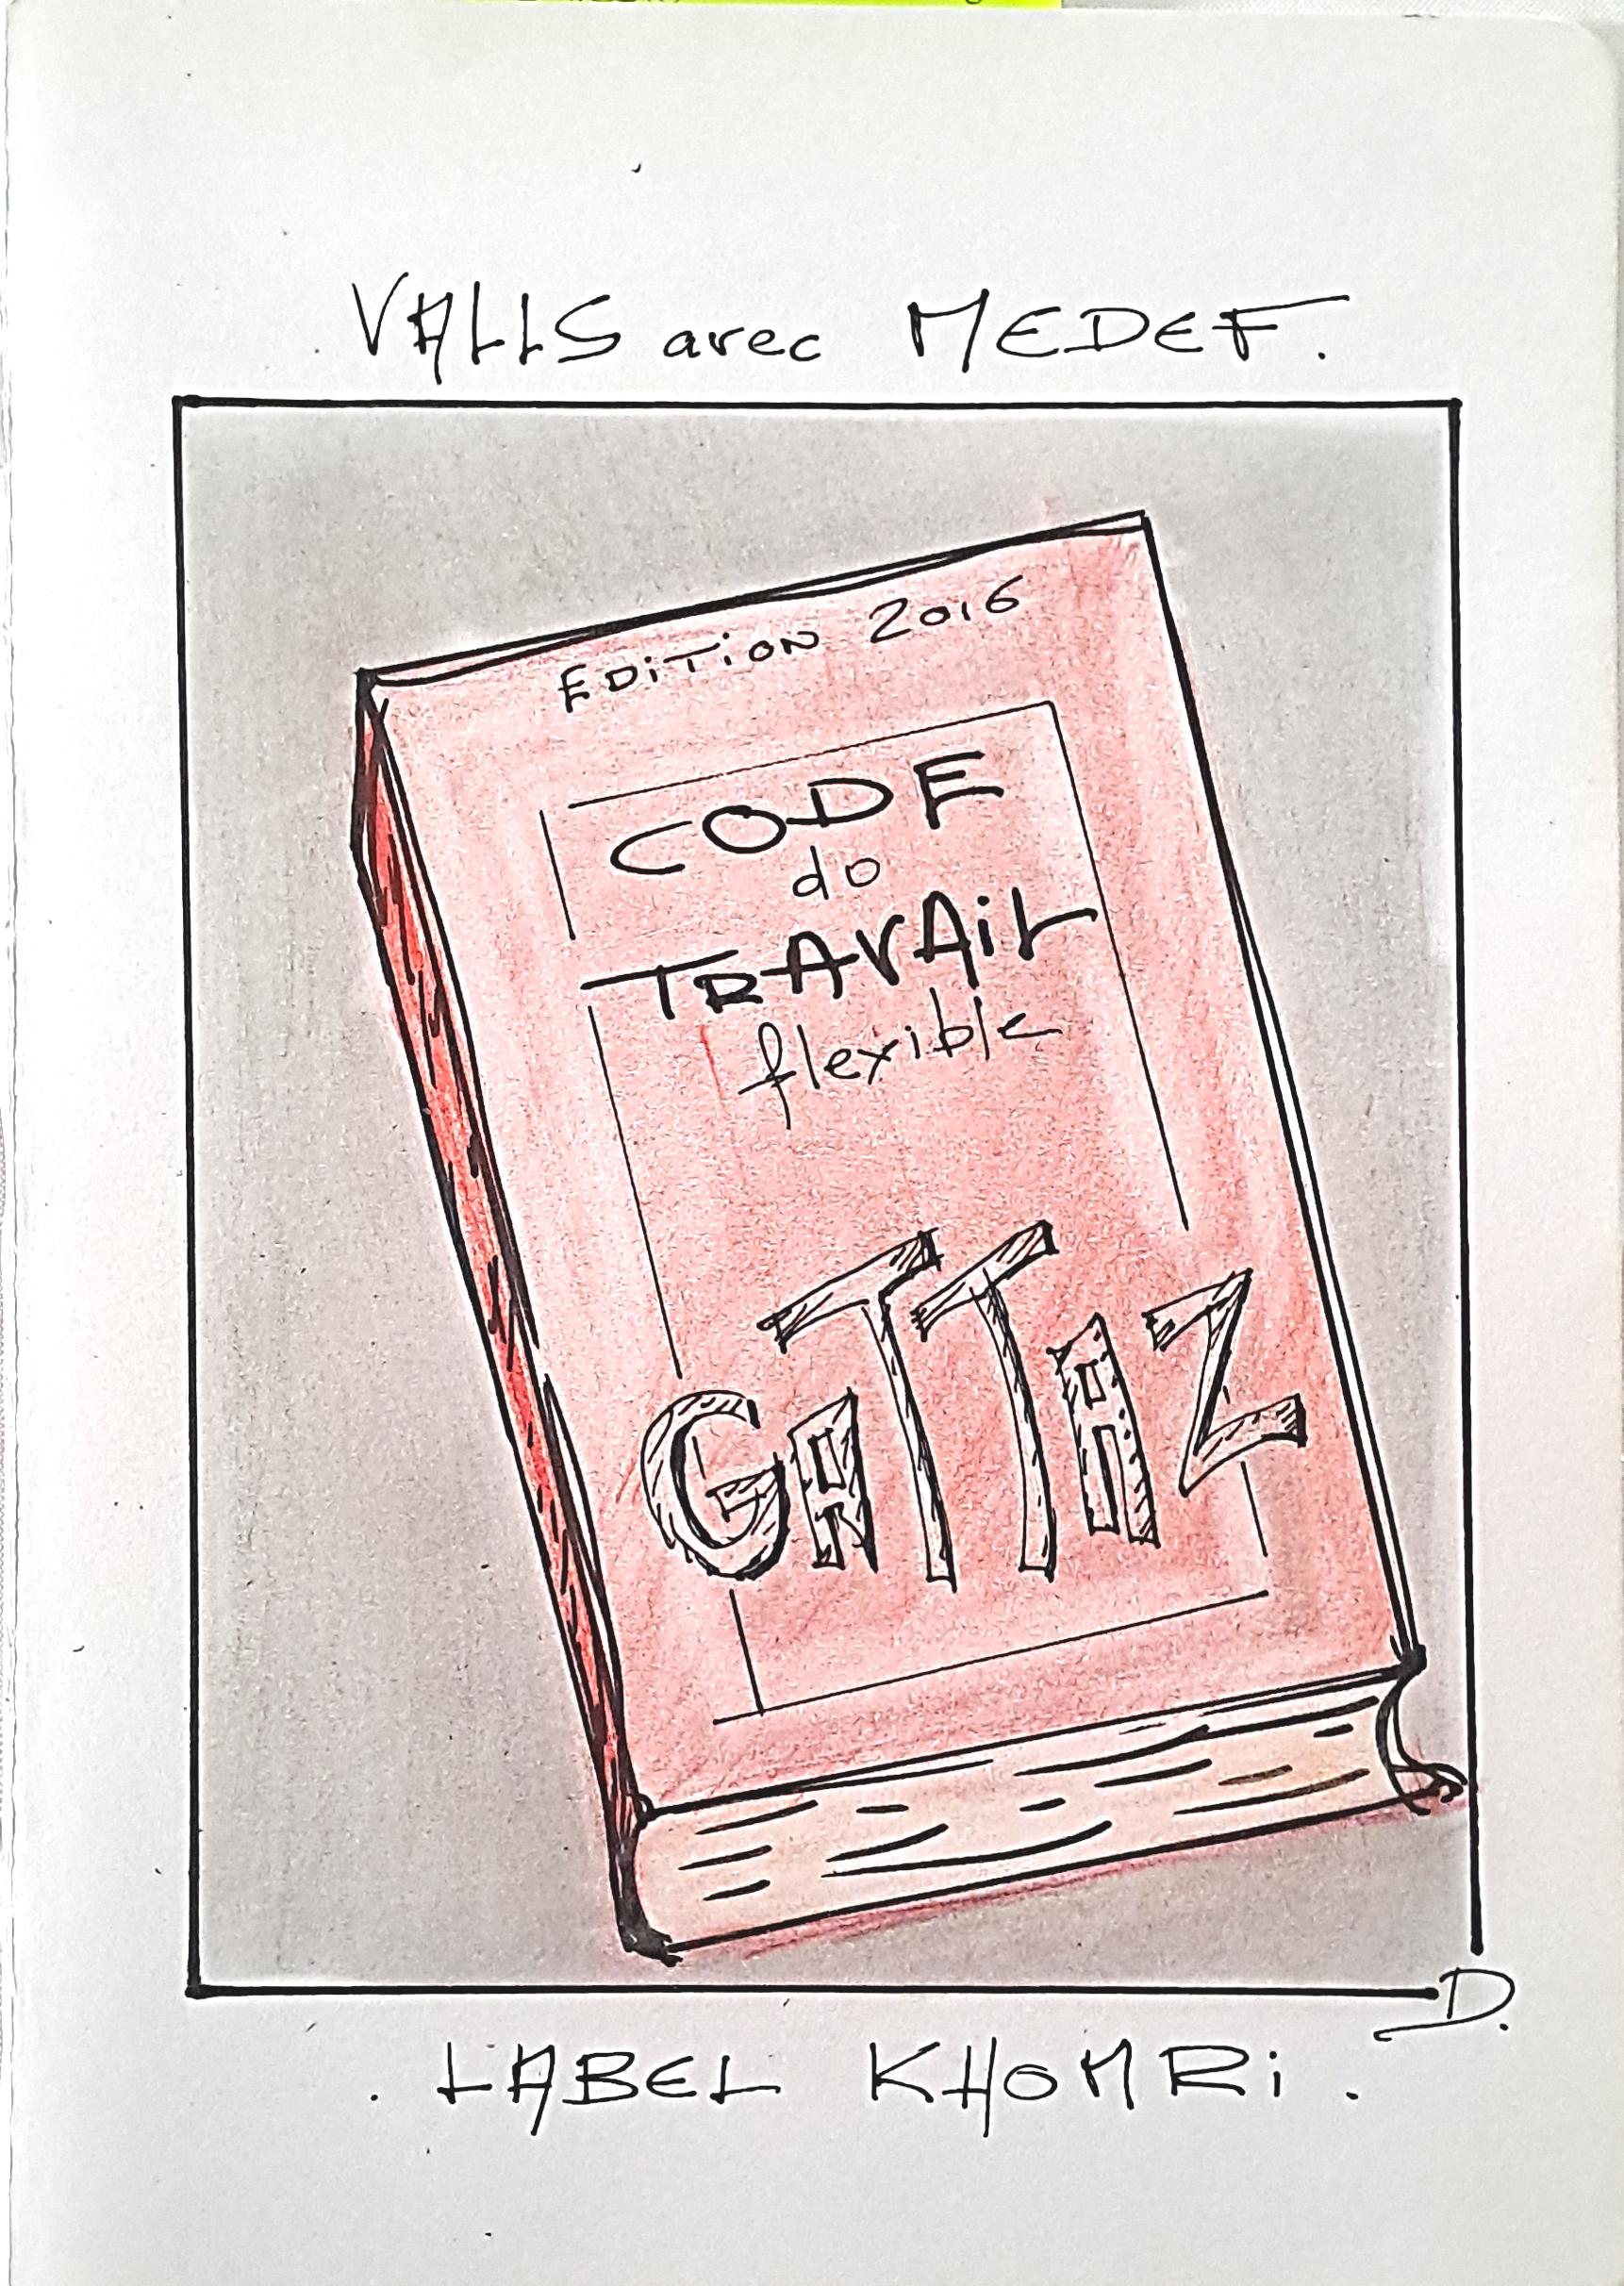 VALLS avec MEDEF.
EDiTiON 2016
CODE
do
TRAVAiL
flexible
GATTAZ
D.
. LABEL KHOMRi .